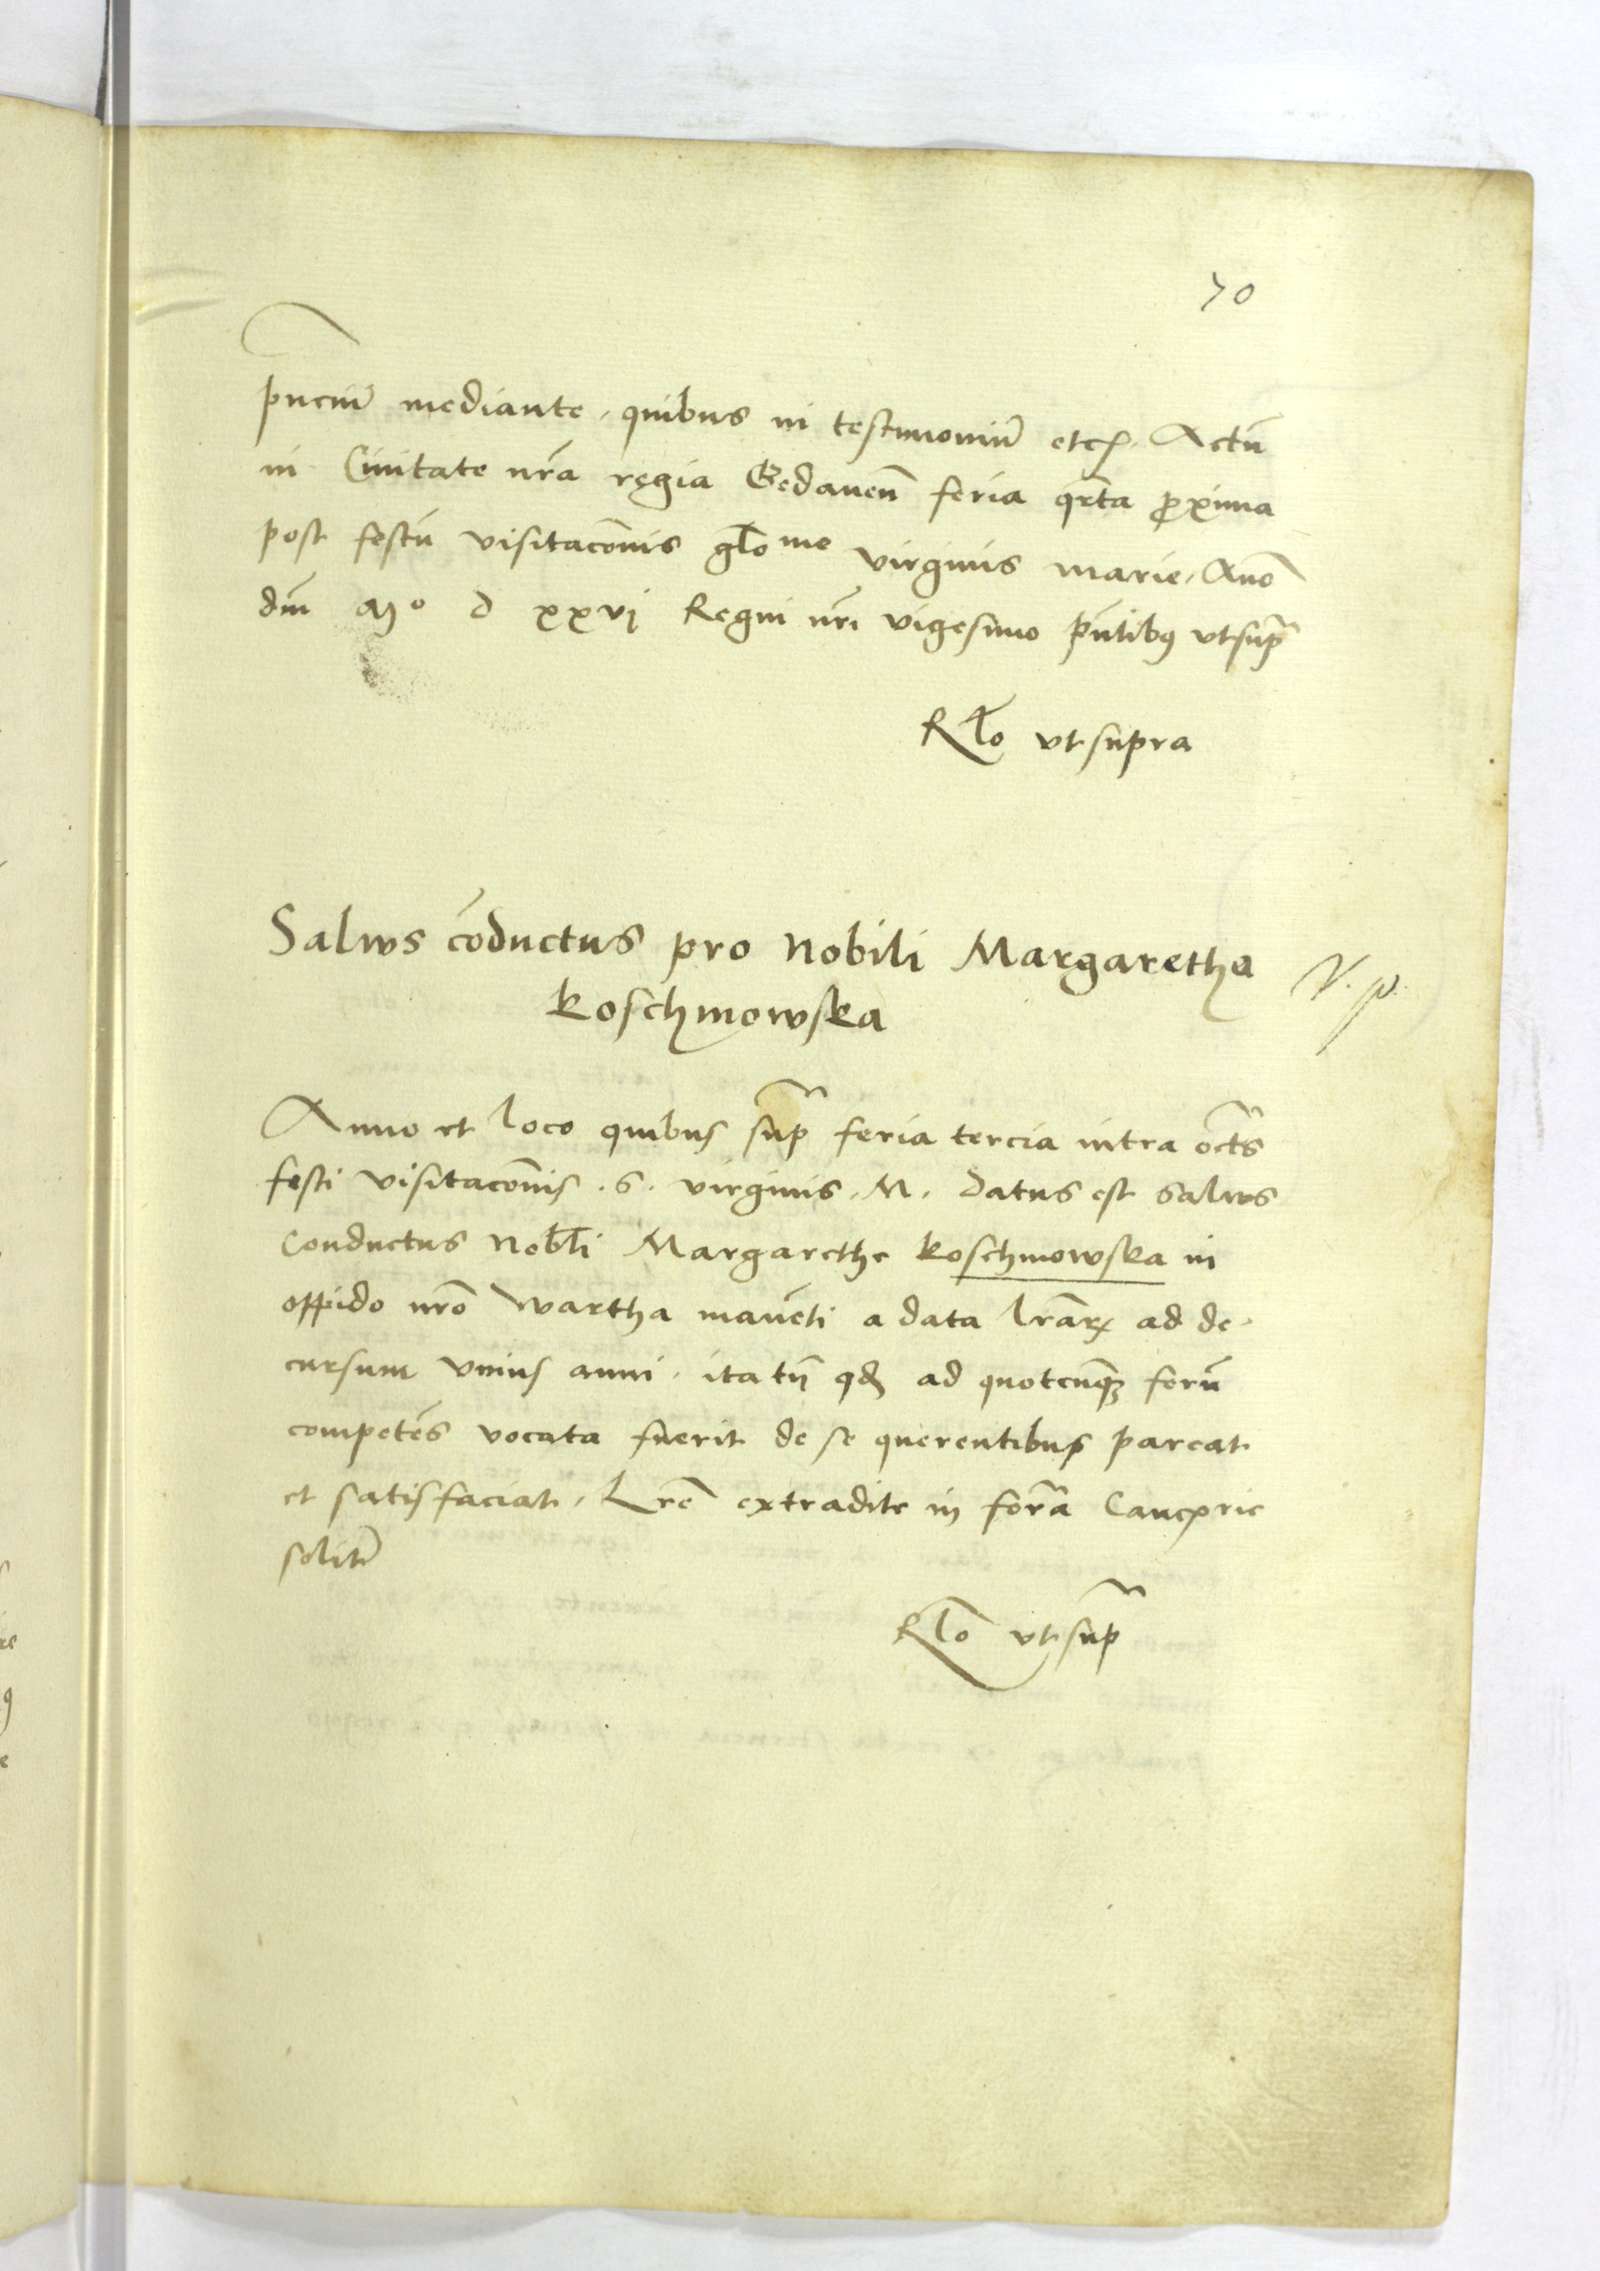 70
pnciũ mediante, quibus in testimoniũ etcꝫ. Actũ
in Civitate nr̃a regia Gedanenͫ feria qrta ꝓxima
post festũ visitacõnis glõme virginis marie, Anõ
dnĩ Mº d xxvj Regni nr̃i vigesimo pñtibꝰ vtsup̃
Rlõ vtsupra
Salws cõductus pro Nobili Margaretha
Koschmowska
V. p.
Anno et loco quibus sup̃ feria tercia intra oct̃s
festi visitacõnis .S. virginis .M. datus est salws
Conductus Nobĩli Margarethe Koschmowska in
oppido nrõ Wartha manẽti a data lrãrꝝ ad de-
cursum vnius anni, ita tñ qđ ad quotcũqꝫ forũ
competẽs vocata fuerit de se querentibus pareat
et satisfaciat, Lrẽ extradite in for̃a Cancẽrie
solit̃
Rlõ vtsup̃